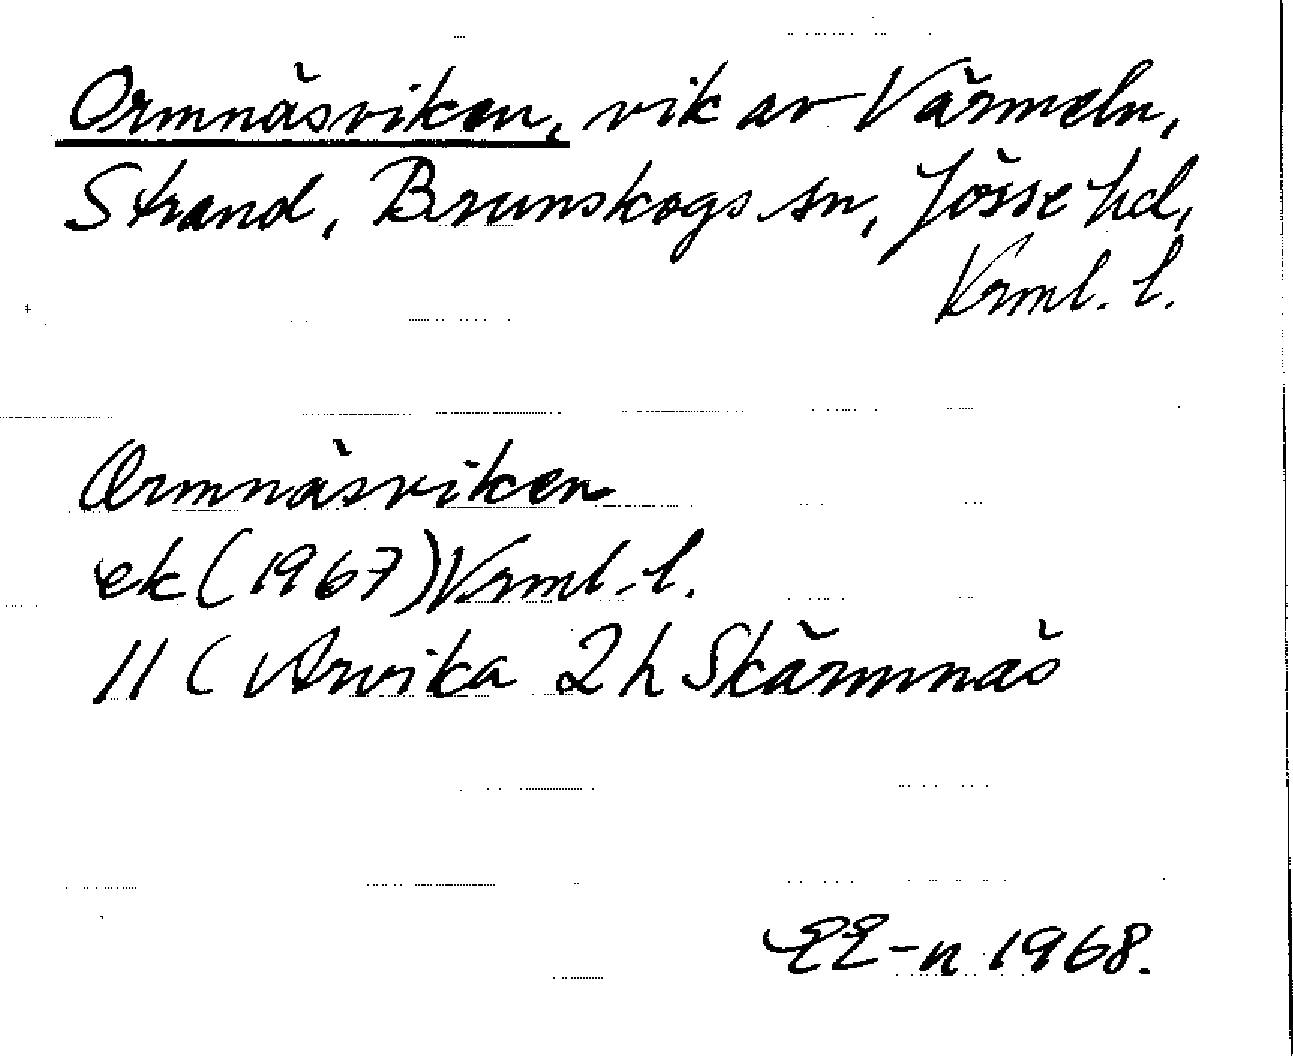 Ormnäsviken, vik av Värmeln,
Strand, Brunskogs sn, Jösse hd,
Vrml. l.
Ormnäsviken
ek (1967) Vrml. l.
11 C Arvika 2 h Skärmnäs
EE-n 1968.